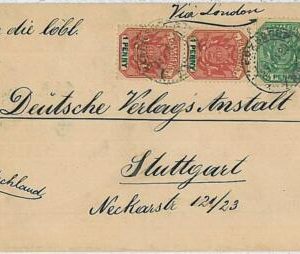 Via London
n die löbl.
1 PENNY 1 PENNY
Deutsche Verlags Anstalt
Stuttgart
schland
Neckarstr 121/23